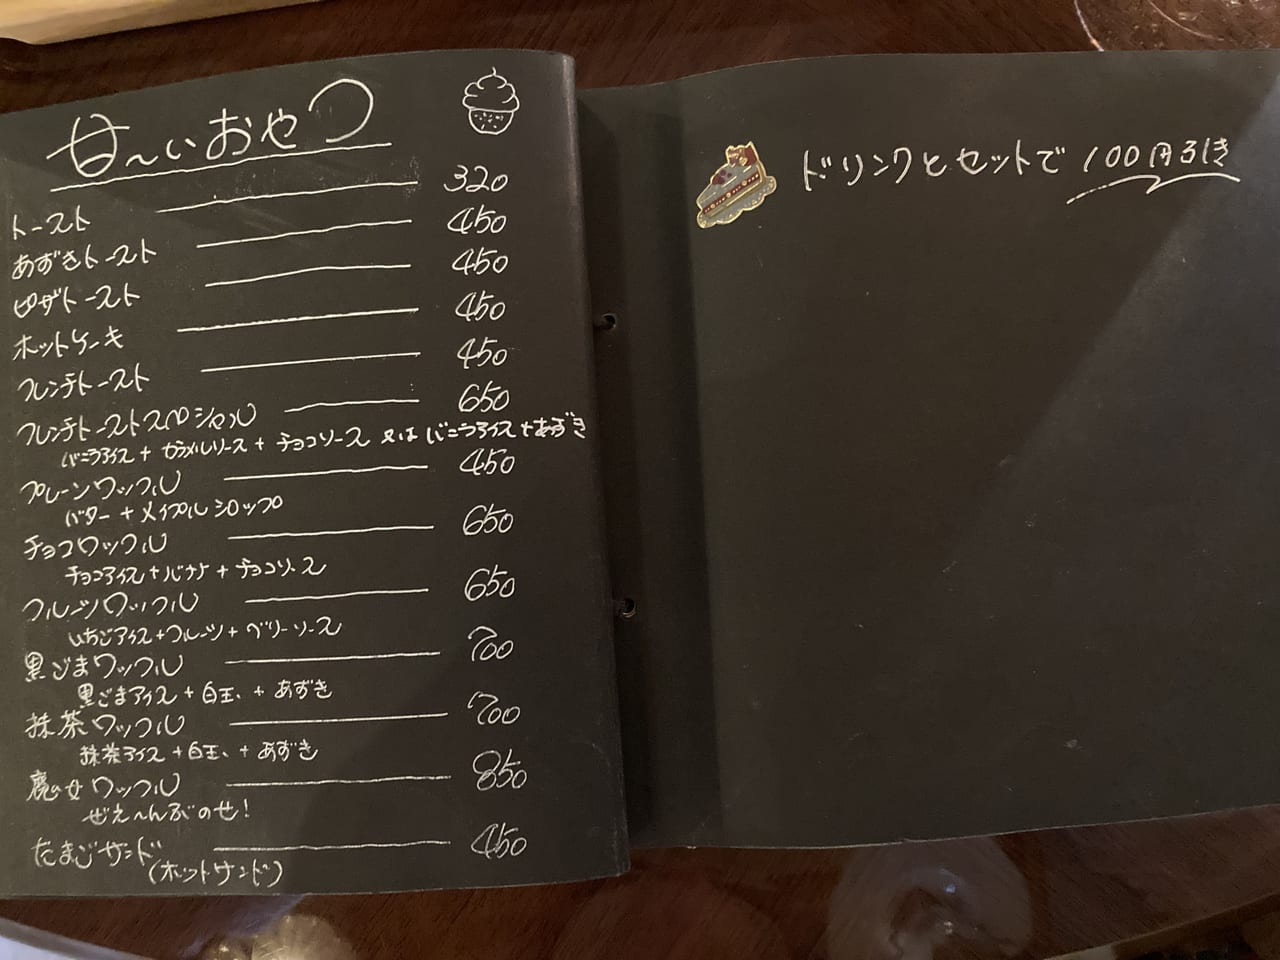 甘〜いおやつ
トースト 320
あずきトースト 450
ピザトースト 450
ホットケーキ 450
フレンチトースト 450
フレンチトーストスペシャル 650
バニラアイス + カラメルソース + チョコソース 又は バニラアイス + あずき
プレーンワッフル 450
バター + メイプルシロップ
チョコワッフル 650
チョコアイス + バナナ + チョコソース
フルーツワッフル 650
いちごアイス + フルーツ + ベリーソース
黒ごまワッフル 700
黒ごまアイス + 白玉 + あずき
抹茶ワッフル 700
抹茶アイス + 白玉 + あずき
魔女ワッフル 850
ぜえ〜んぶのせ!
たまごサンド 450
(ホットサンド)
ドリンクとセットで100円引き